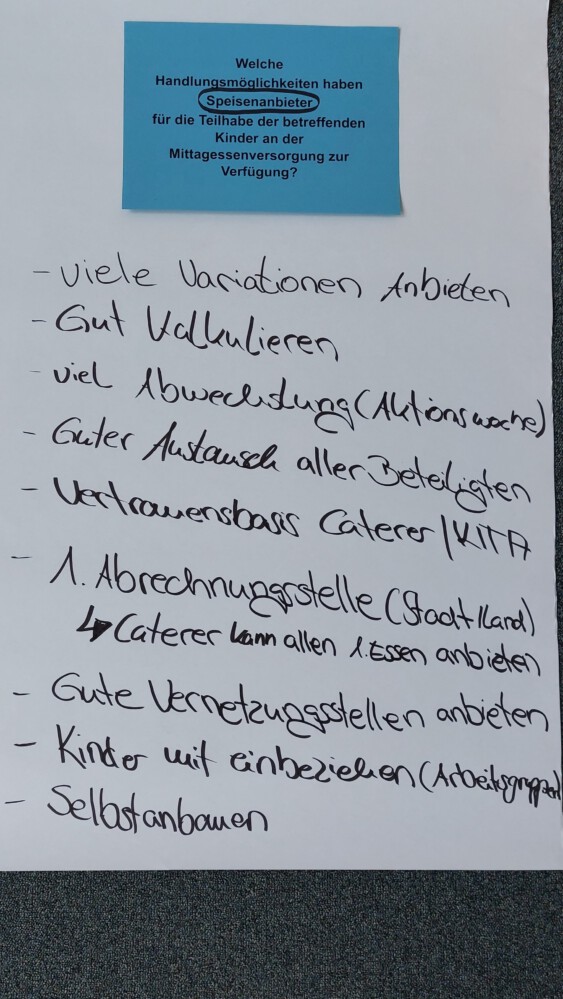 Welche
Handlungsmöglichkeiten haben
Speisenanbieter
für die Teilhabe der betreffenden
Kinder an der
Mittagessenversorgung zur
Verfügung?
- viele Variationen Anbieten
- Gut Kalkulieren
- viel Abwechslung (Aktionswoche)
- Guter Austausch aller Beteiligten
- Vertrauensbasis Caterer/KITA
- 1. Abrechnungsstelle (Stadt/Land)
↳ Caterer kann allen 1. Essen anbieten
- Gute Vernetzungsstellen anbieten
- Kinder mit einbeziehen (Arbeitsgruppen)
- Selbstanbauen